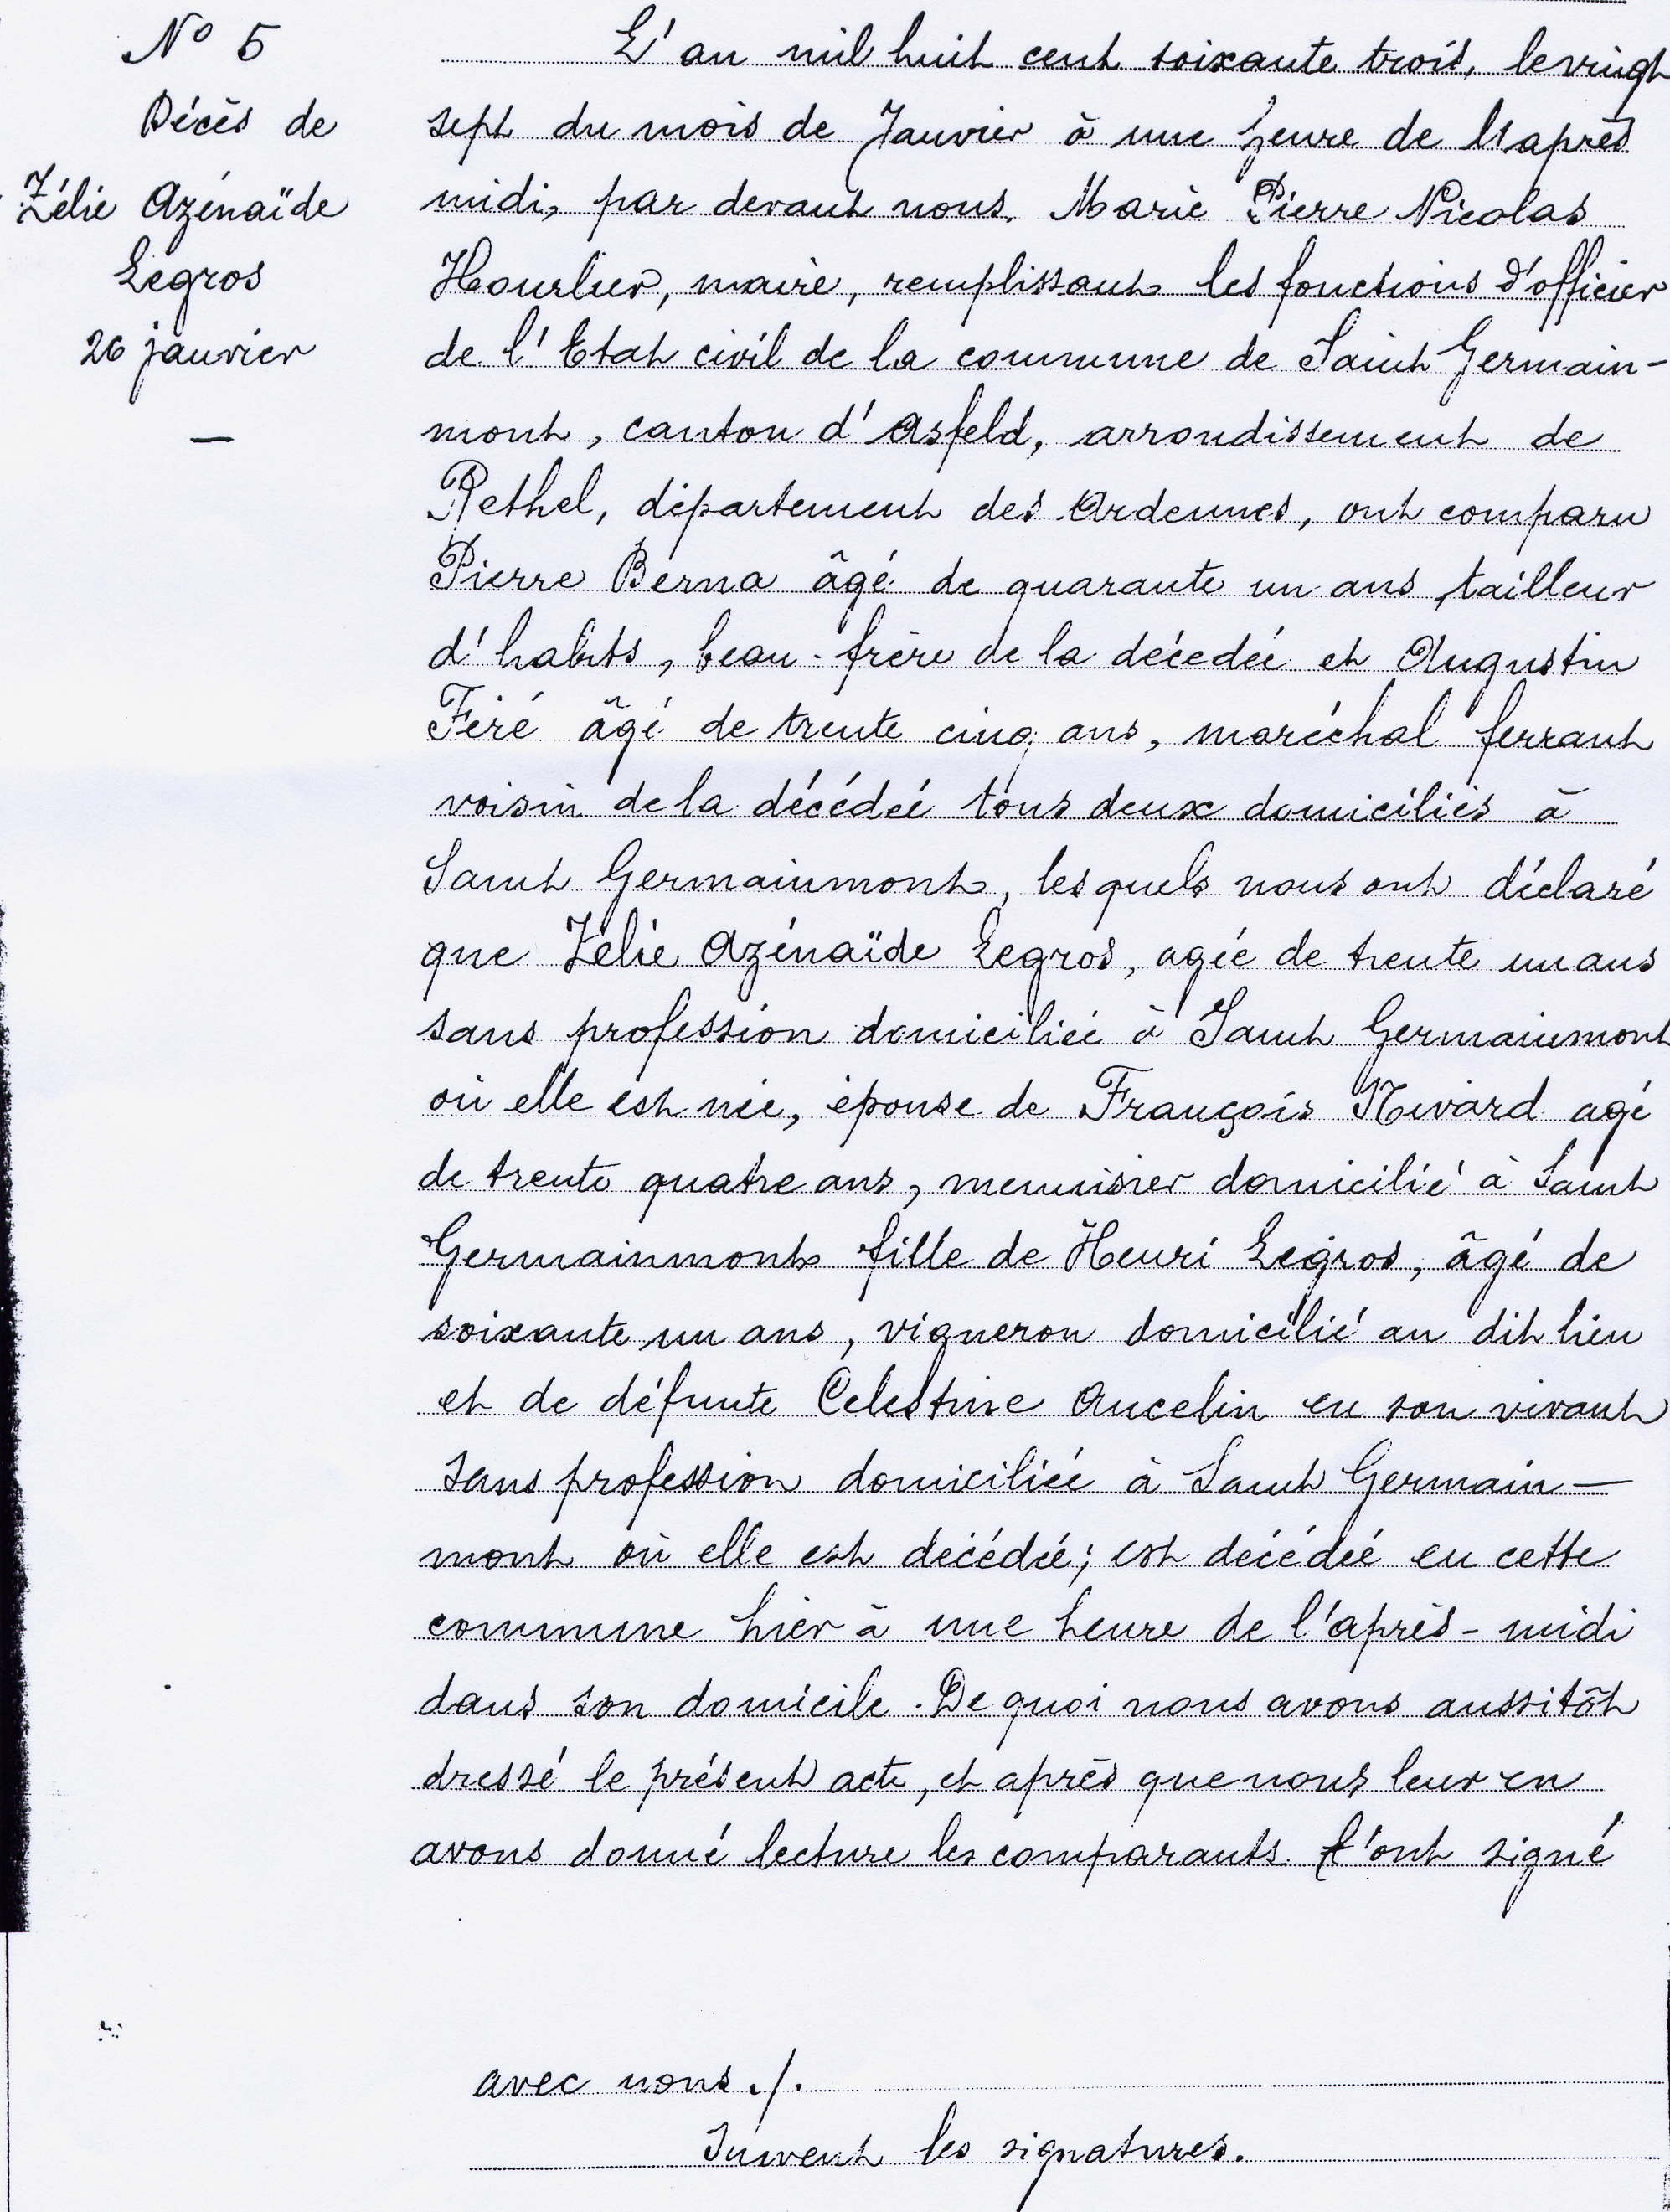 N° 5
Décès de
Zélie Azénaïde
Legros
26 janvier
—
L'an mil huit cent soixante trois, le vingt
sept du mois de Janvier à une heure de l'après
midi, par devant nous, Marie Pierre Nicolas
Hourlier, maire, remplissant les fonctions d'officier
de l'Etat civil de la commune de Saint Germain-
mont, canton d'Asfeld, arrondissement de
Rethel, département des Ardennes, ont comparu
Pierre Berna âgé de quarante un ans, tailleur
d'habits, beau-frère de la décédée et Augustin
Féré âgé de trente cinq ans, maréchal ferrant
voisin de la décédée tous deux domiciliés à
Saint Germainmont, lesquels nous ont déclaré
que Zélie Azénaïde Legros, agée de trente un ans
sans profession domiciliée à Saint Germainmont
où elle est née, épouse de François Nivard agé
de trente quatre ans, menuisier domicilié à Saint
Germainmont fille de Henri Legros, âgé de
soixante un ans, vigneron domicilié au dit lieu
et de défunte Celestine Ancelin en son vivant
sans profession domiciliée à Saint Germain-
mont où elle est décédée; est décédée en cette
commune hier à une heure de l'après-midi
dans son domicile. De quoi nous avons aussitôt
dressé le présent acte, et après que nous leur en
avons donné lecture les comparants l'ont signé
avec nous ./.
Suivent les signatures.